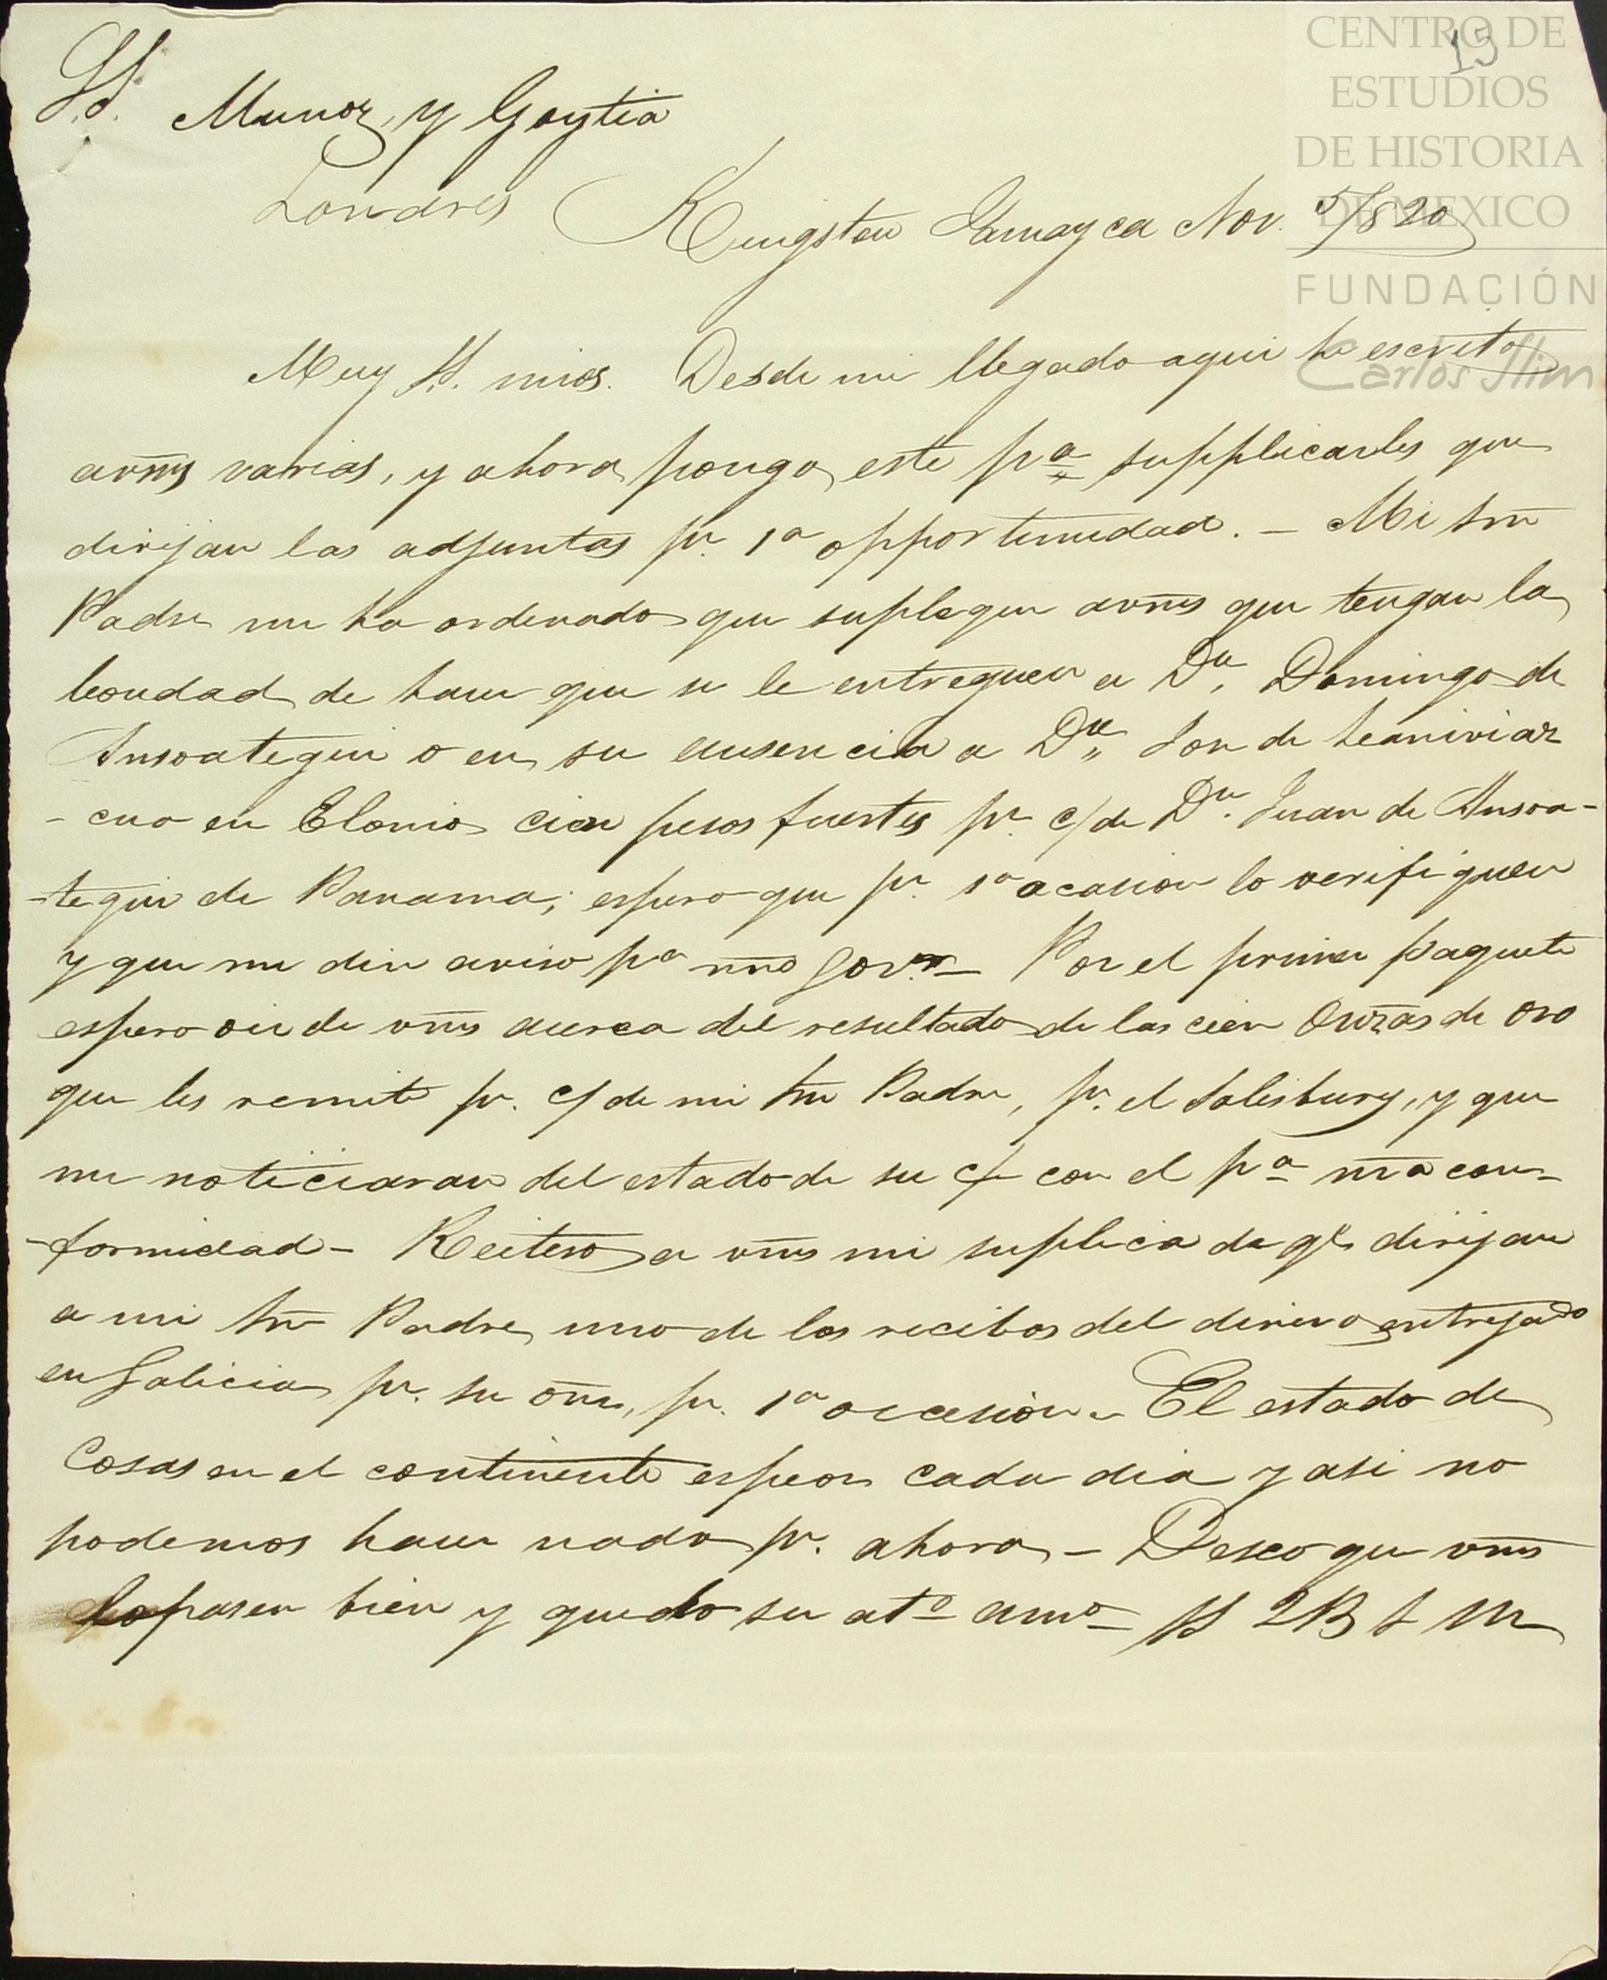 15
CENTRO DE
ESTUDIOS
DE HISTORIA
DE MEXICO
FUNDACIÓN
Carlos Slim
SS. Munoz, y Goytia
Londres
Kingston Jamayca Nov. /820
Muy SS. mios. Desde mi llegado aqui he escrito
avms varias, y ahora pongo este pa supplicarles que
dirijan las adjuntas pr. 1a opportunidad. - Mi Sr
Padre me ha ordenado que supleque avms que tengan la
bondad de hacer que se le entreguen a Dn. Domingo de
Ansoategui o en su ausencia a Dn Jon de
- en cien pesos fuertes pr. c/ de Dn. Juan de Ansoa-
-tegui de Panama; espero que pr. 1a ocasion lo verifiquen
y que me den aviso pa nno Govr. - Por el primer paquete
espero oir de vms acerca del resultado de las cien Onzas de oro
que les remite pr. c/ de mi Sr Padre, pr. el Salisbury, y que
me noticiaran del estado de su c/ con el pa nra con-
-formidad - Reitero a vms mi suplica de qe dirijan
a mi Sr Padre uno de los recibos del dinero entregado
en Galicia pr. su orn, pr. 1a occasion. El estado de
Cosas en el continente es peor cada dia y asi no
podemos hacer nada pr. ahora - Deseo que vms
lo pasen bien y quedo su ato amo SS 2B S M